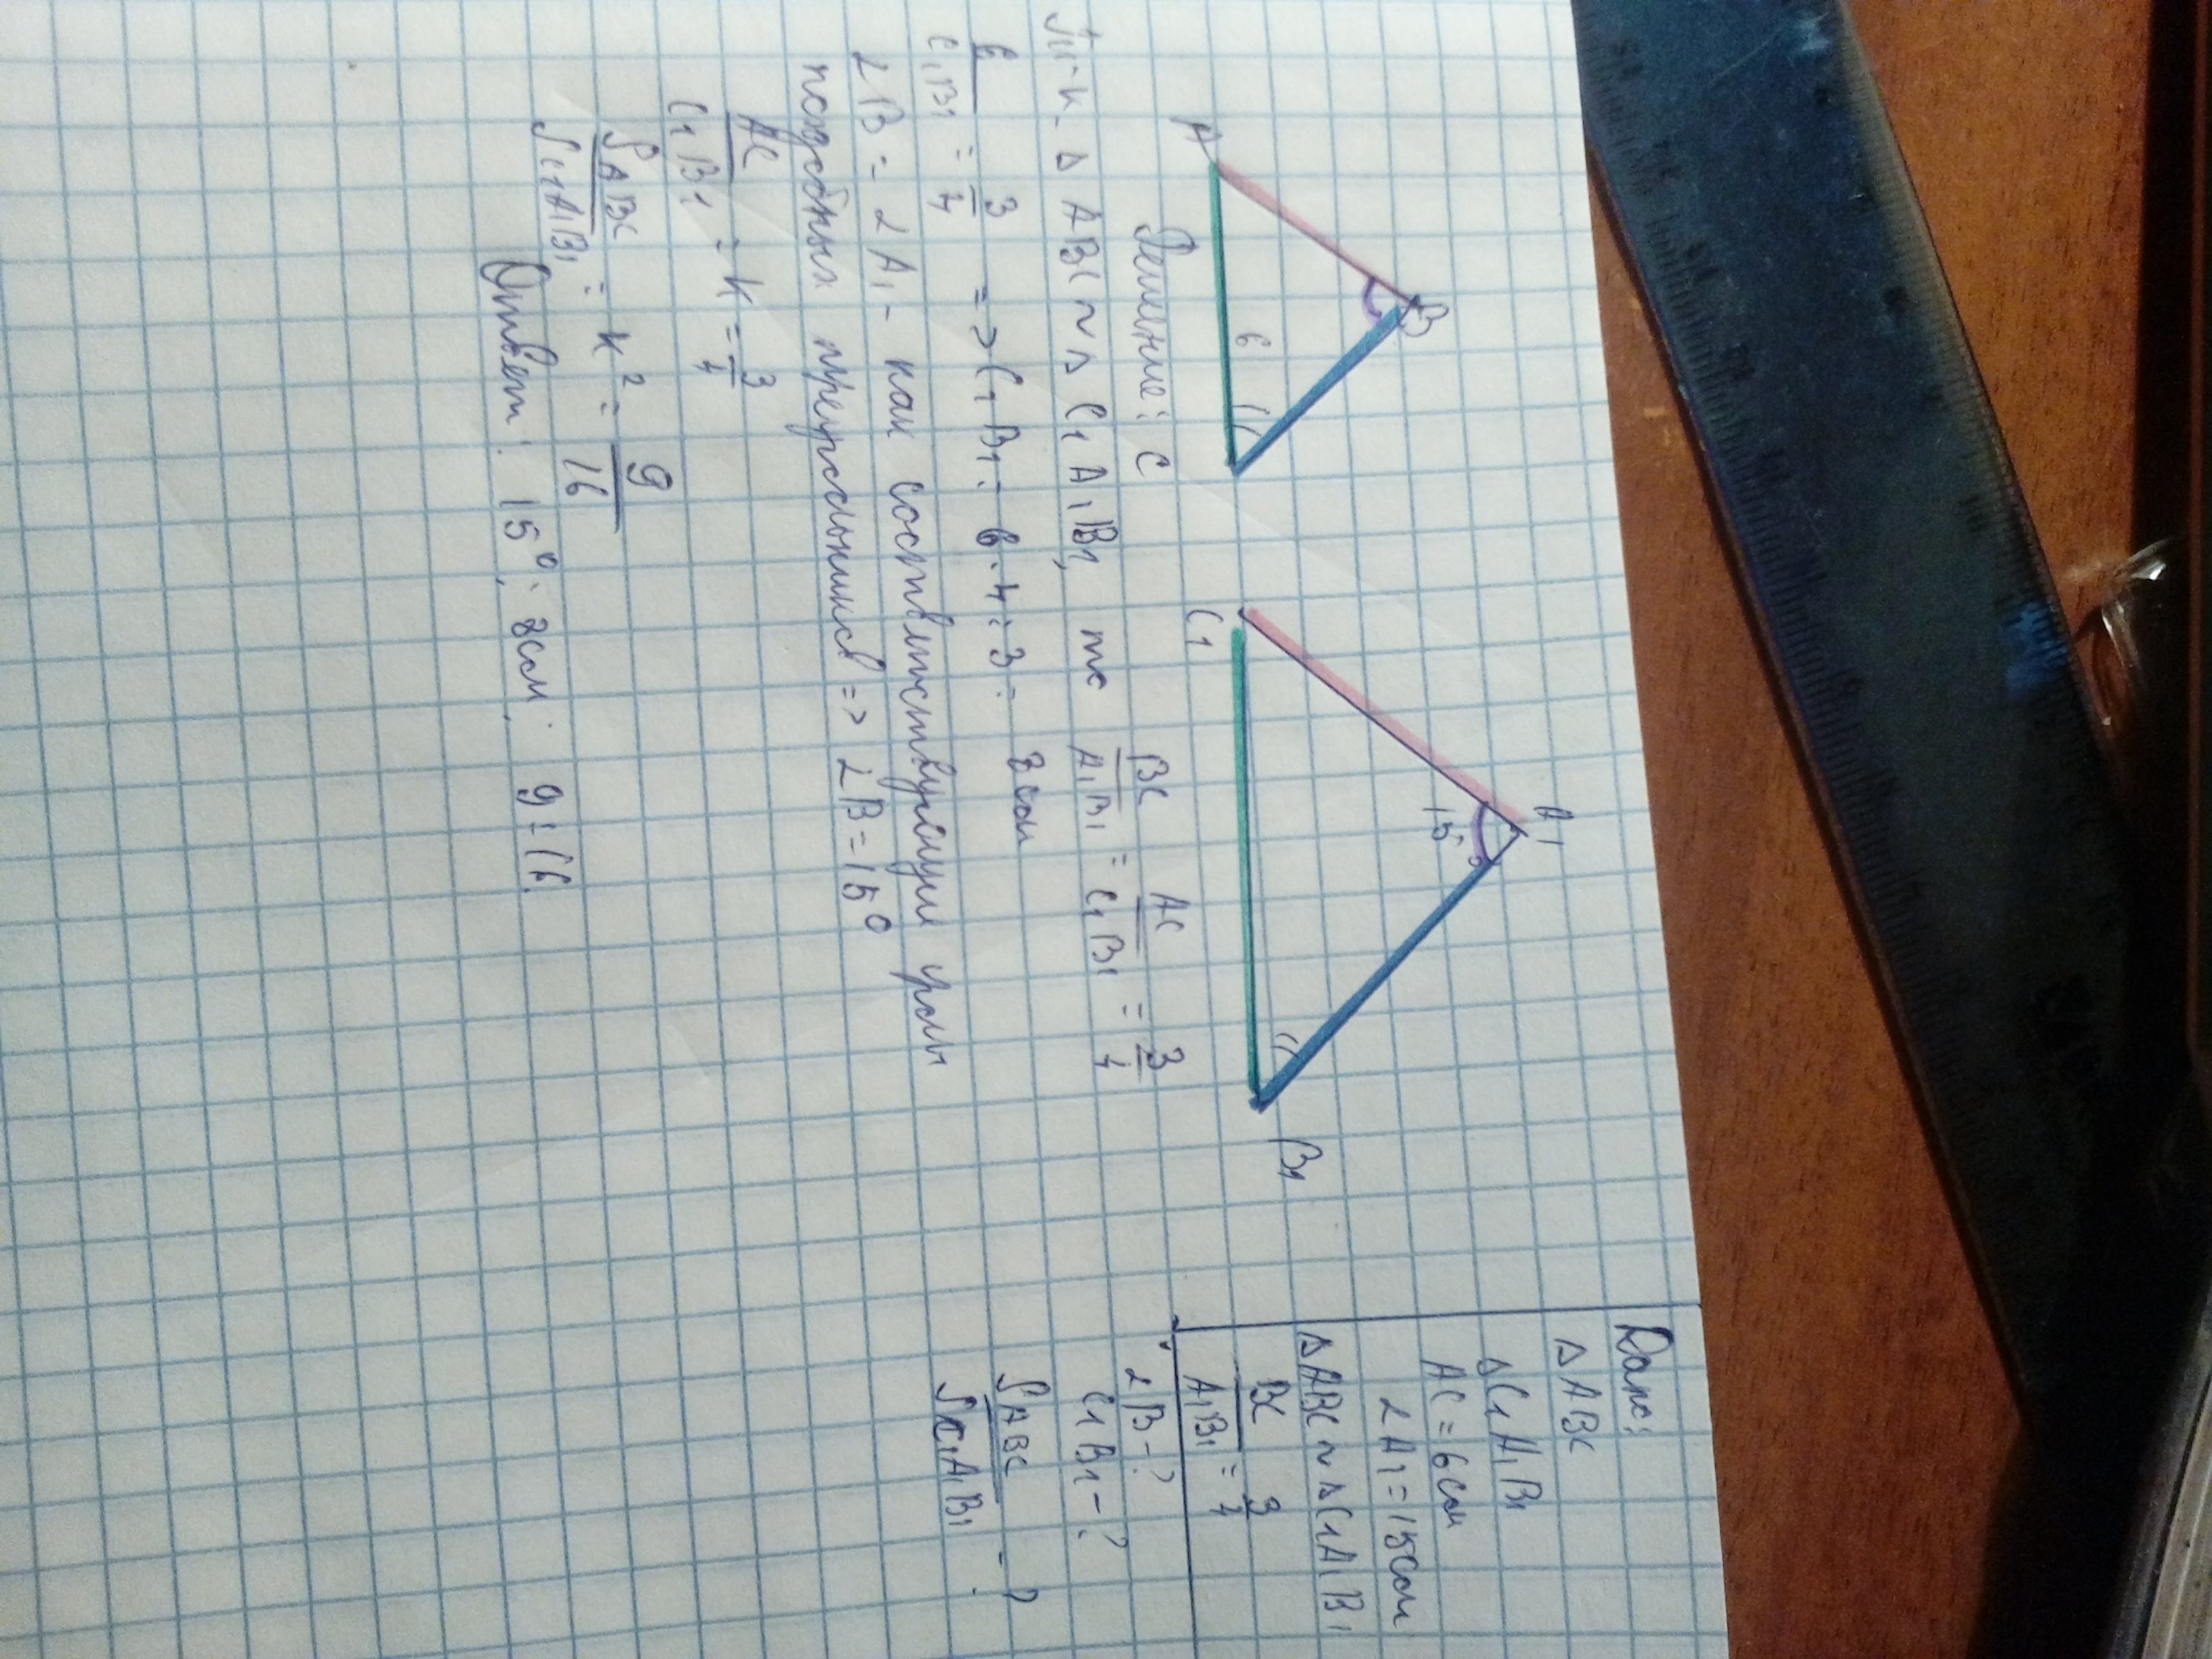 Дано:
Δ ABC
ΔC₁A₁B₁
AC = 6 см
∠A₁ = 15 см
ΔABC ~ ΔC₁A₁B₁
BC/A₁B₁ = 3/4
∠B - ?
C₁B₁ - ?
S ABC / S C₁A₁B₁ - ?
B
A
6
C
A₁
15°
C₁
B₁
Решение:
Т.к. Δ ABC ~ Δ C₁A₁B₁, то BC/A₁B₁ = AC/C₁B₁ = 3/4
6/C₁B₁ = 3/4 => C₁B₁ = 6·4:3 = 8 см
∠B = ∠A₁ - как соответствующие углы
подобных треугольников => ∠B = 15°
AC/C₁B₁ = k = 3/4
S ABC / S C₁A₁B₁ = k² = 9/16
Ответ: 15°; 8 см; 9:16